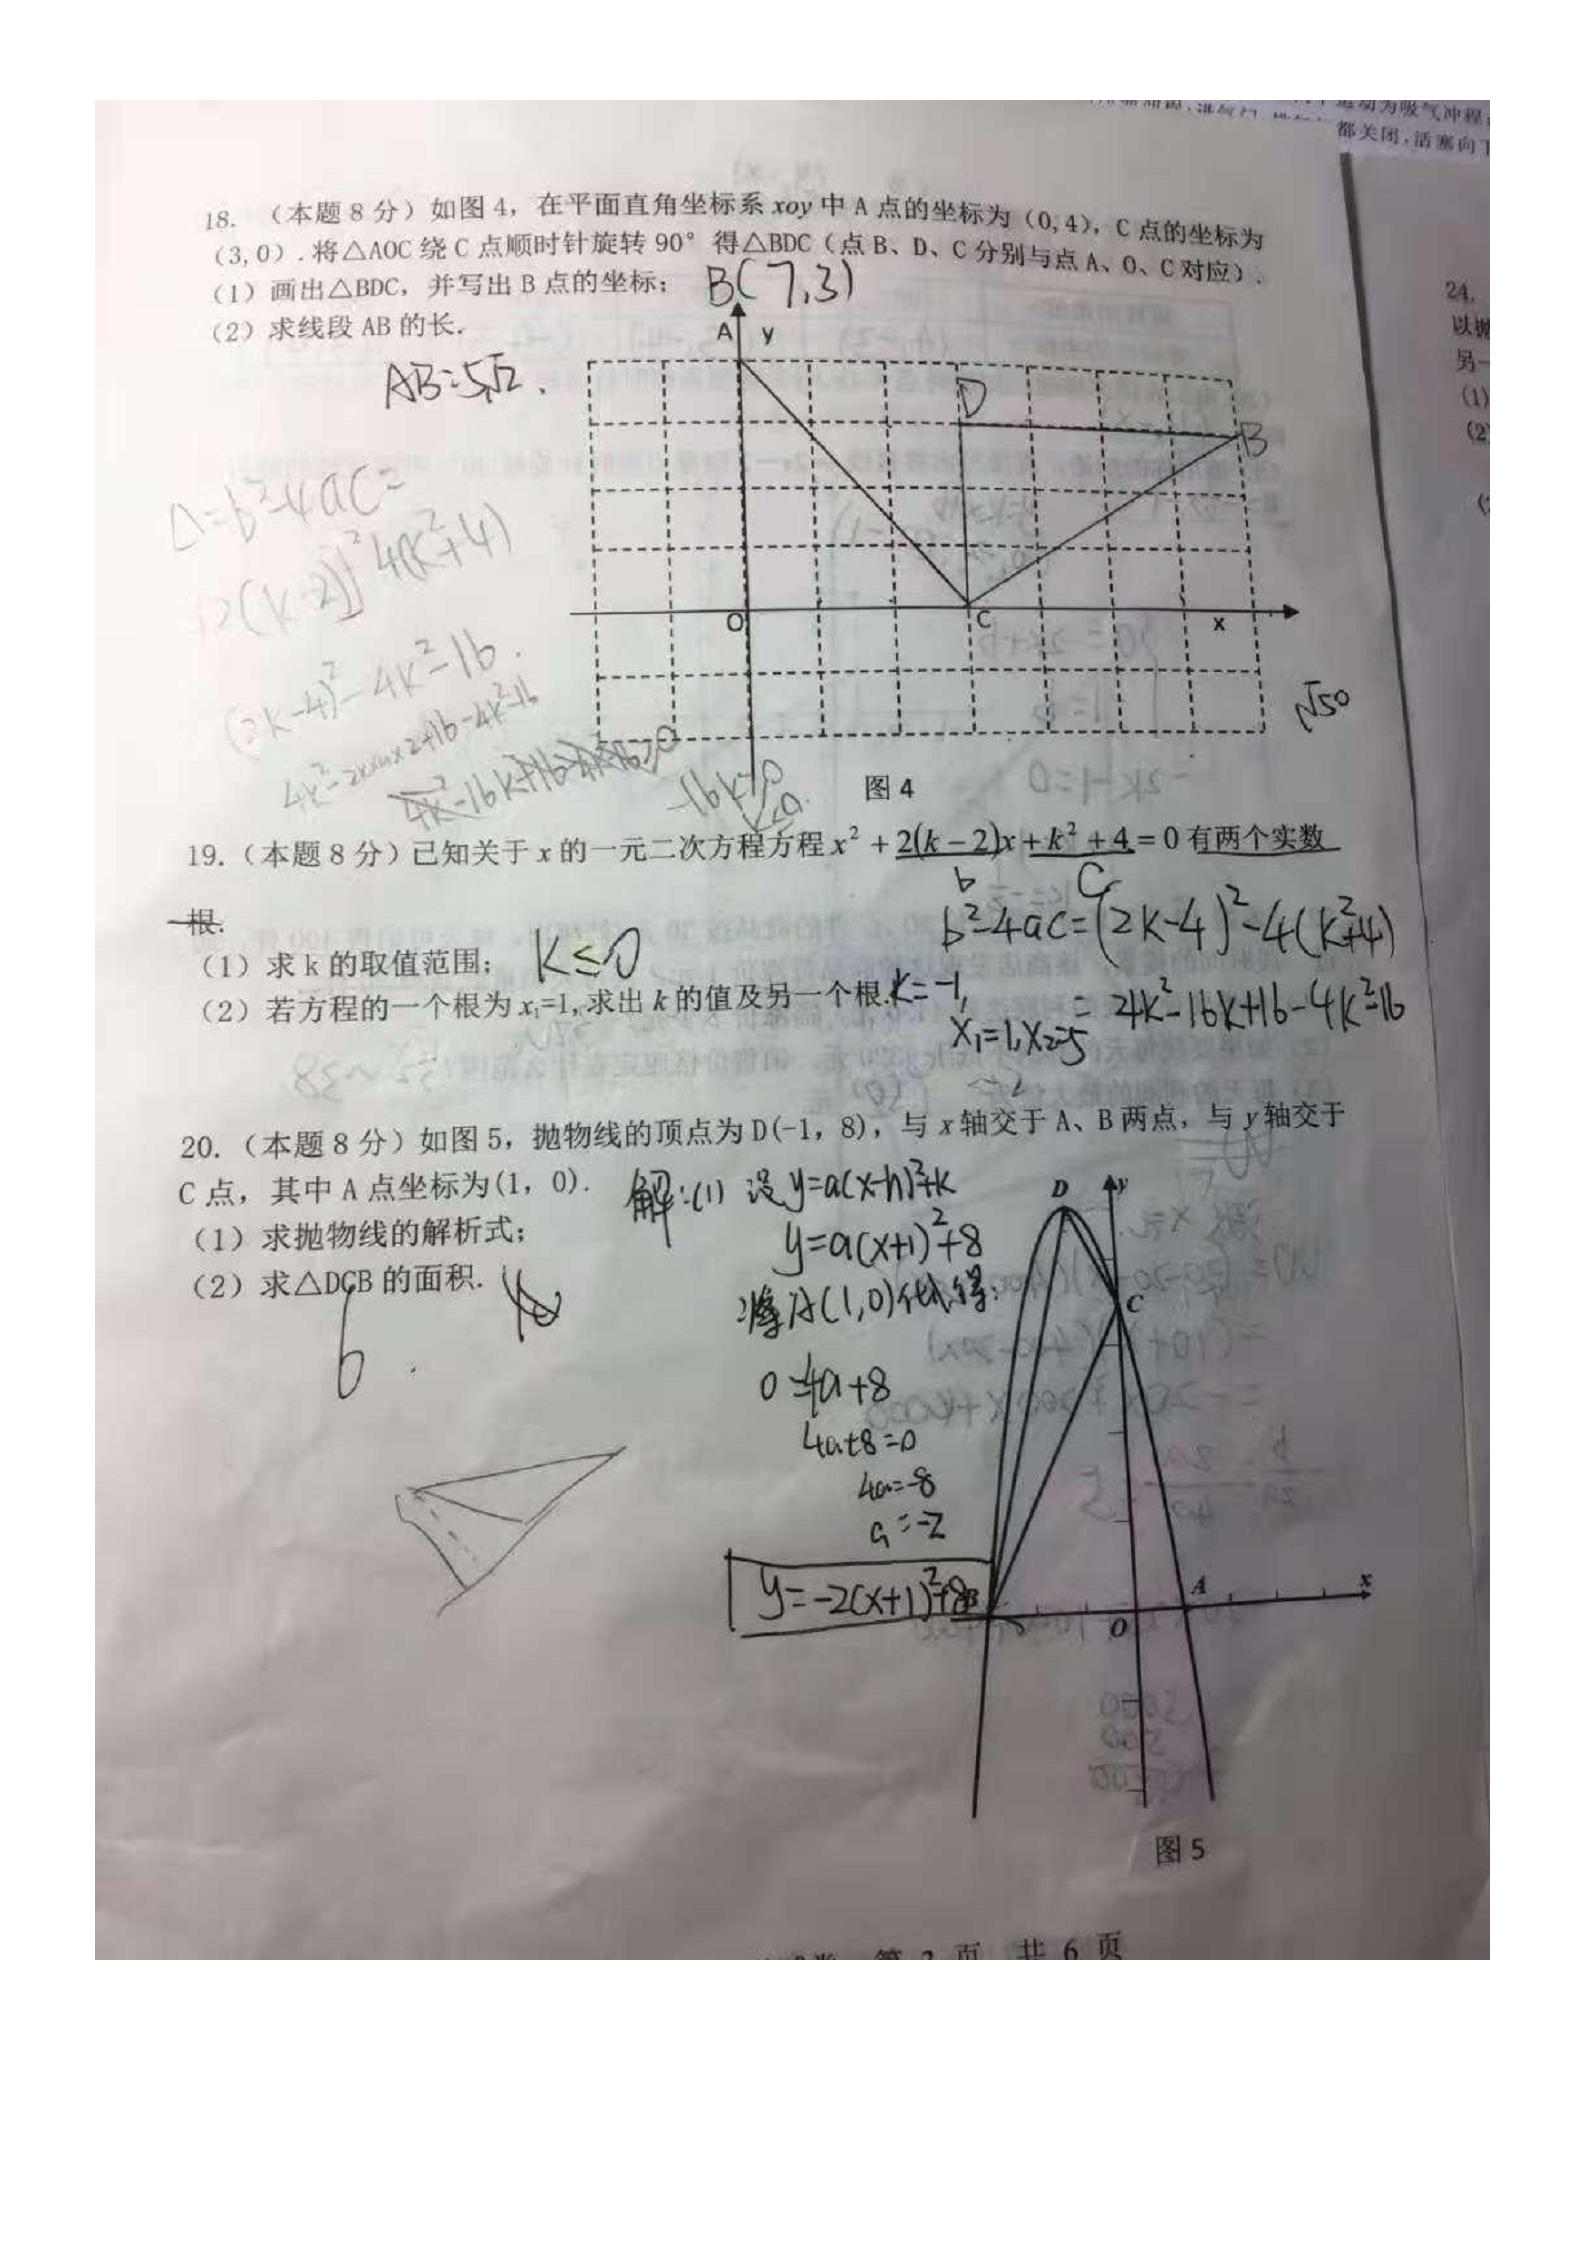 都关闭,活塞向下
18. （本题 8 分）如图 4，在平面直角坐标系 xoy 中 A 点的坐标为（0,4），C 点的坐标为
（3,0）.将△AOC 绕 C 点顺时针旋转 90° 得△BDC（点 B、D、C 分别与点 A、O、C 对应）.
（1）画出△BDC，并写出 B 点的坐标； B(7,3)
（2）求线段 AB 的长.
AB=5√2.
A y
D
B
O C x
√50
图 4
Δ=b²-4ac=
(2k-4)²-4k²-16.
-16k≥0
19.（本题 8 分）已知关于 x 的一元二次方程方程 x² + 2(k − 2)x + k² + 4 = 0 有两个实数
b C
根.
b²-4ac=(2k-4)²-4(k²+4)
（1）求 k 的取值范围； K≤0
= 4k²-16k+16-4k²-16
（2）若方程的一个根为 x₁=1,求出 k 的值及另一个根. k=-1,
X₁=1,X₂=5
20.（本题 8 分）如图 5，抛物线的顶点为 D(-1，8)，与 x 轴交于 A、B 两点，与 y 轴交于
C 点，其中 A 点坐标为(1，0).
解:(1) 设 y=a(x-h)²+k
（1）求抛物线的解析式；
y=a(x+1)²+8
（2）求△DCB 的面积.
6
0=4a+8
4a+8=0
4a=-8
a=-2
y=-2(x+1)²+8
D y
C
B O A x
图 5
第 3 页 共 6 页
24.
以抛
另一
(1)
(2)